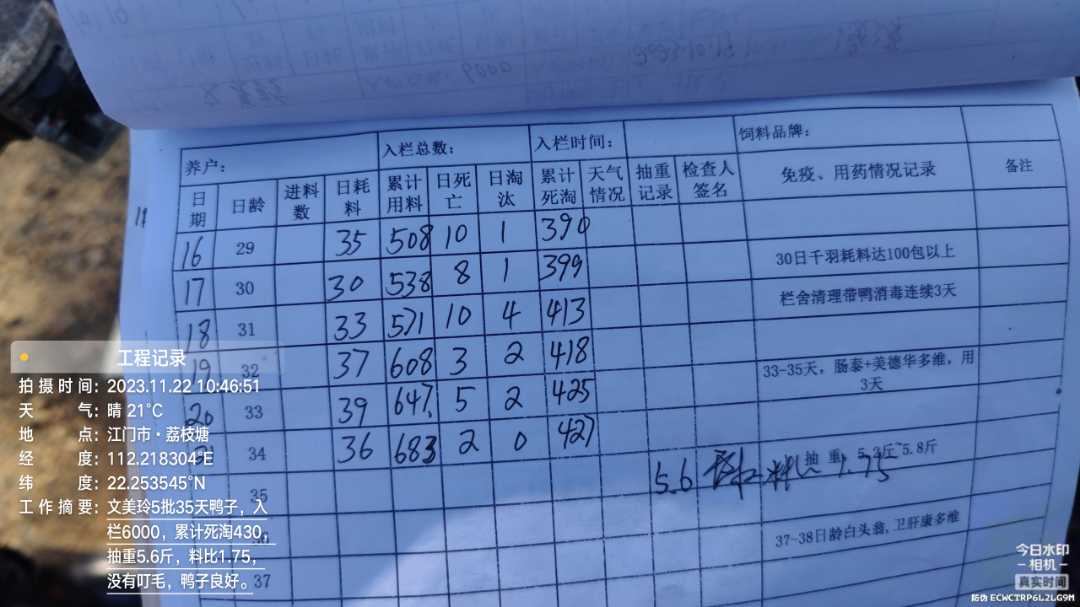 养户： 入栏总数： 入栏时间： 饲料品牌：
日期 日龄 进料数 日耗料 累计用料 日死亡 日淘汰 累计死淘 天气情况 抽重记录 检查人签名 免疫、用药情况记录 备注
16 29 35 508 10 1 390
17 30 30 538 8 1 399 30日千羽耗料达100包以上
18 31 33 571 10 4 413 栏舍清理带鸭消毒连续3天
19 32 37 608 3 2 418
20 33 39 647 5 2 425 33-35天，肠泰+美德华多维，用3天
34 36 683 2 0 427
35 抽重 5.2斤~5.8斤
5.6 料 1.75
37-38日龄白头翁,卫肝康多维
37
工程记录
拍摄时间：2023.11.22 10:46:51
天气：晴 21℃
地点：江门市·荔枝塘
经度：112.218304°E
纬度：22.253545°N
工作摘要：文美玲5批35天鸭子，入
栏6000，累计死淘430，
抽重5.6斤，料比1.75，
没有叮毛，鸭子良好。
今日水印
相机
真实时间
防伪 ECWCTRP6L2LG9M